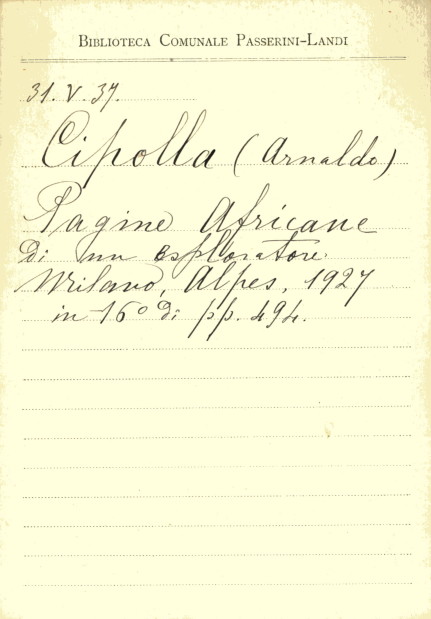 BIBLIOTECA COMUNALE PASSERINI-LANDI
31. V. 37.
Cipolla (Arnaldo)
Pagine Africane
di un esploratore.
Milano, Alpes, 1927
in 16° di pp. 494.